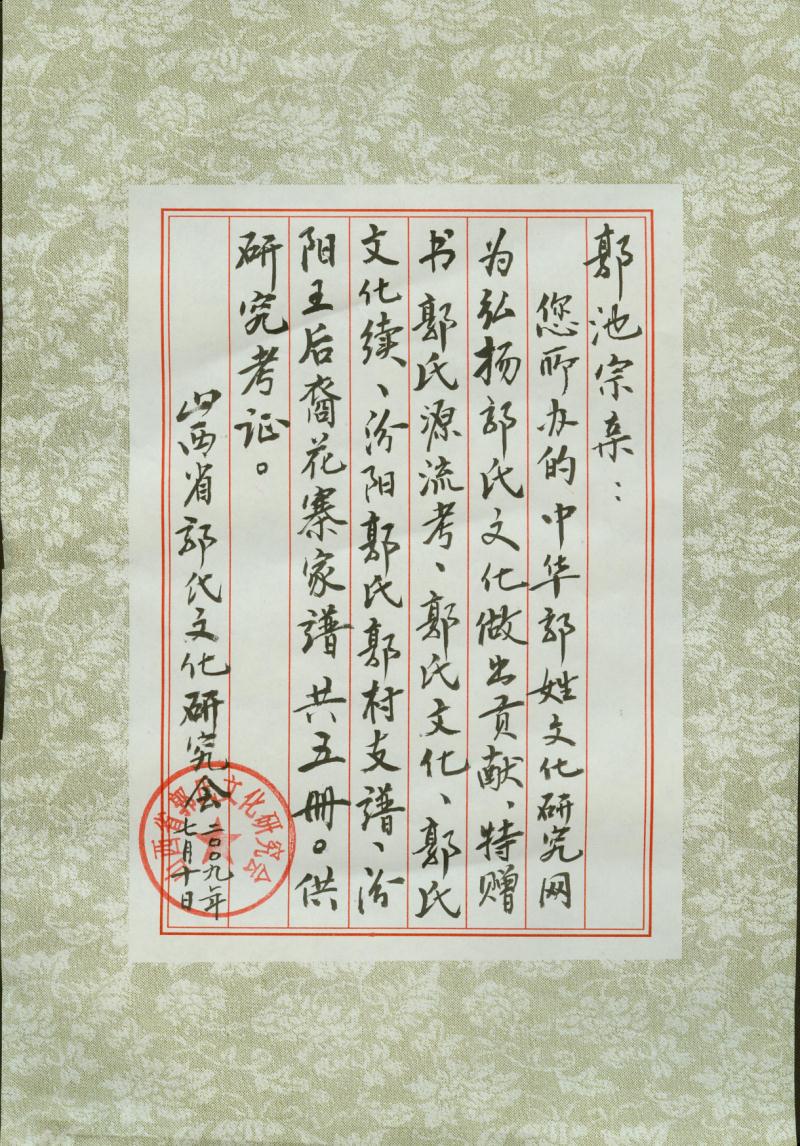 郭池宗亲：
您所办的中华郭姓文化研究网
为弘扬郭氏文化做出贡献、特赠
书郭氏源流考、郭氏文化、郭氏
文化续、汾阳郭氏郭村支谱、汾
阳王后裔花寨家谱共五册。供
研究考证。
山西省郭氏文化研究会
二〇〇九年
七月十日
山西省郭氏文化研究会